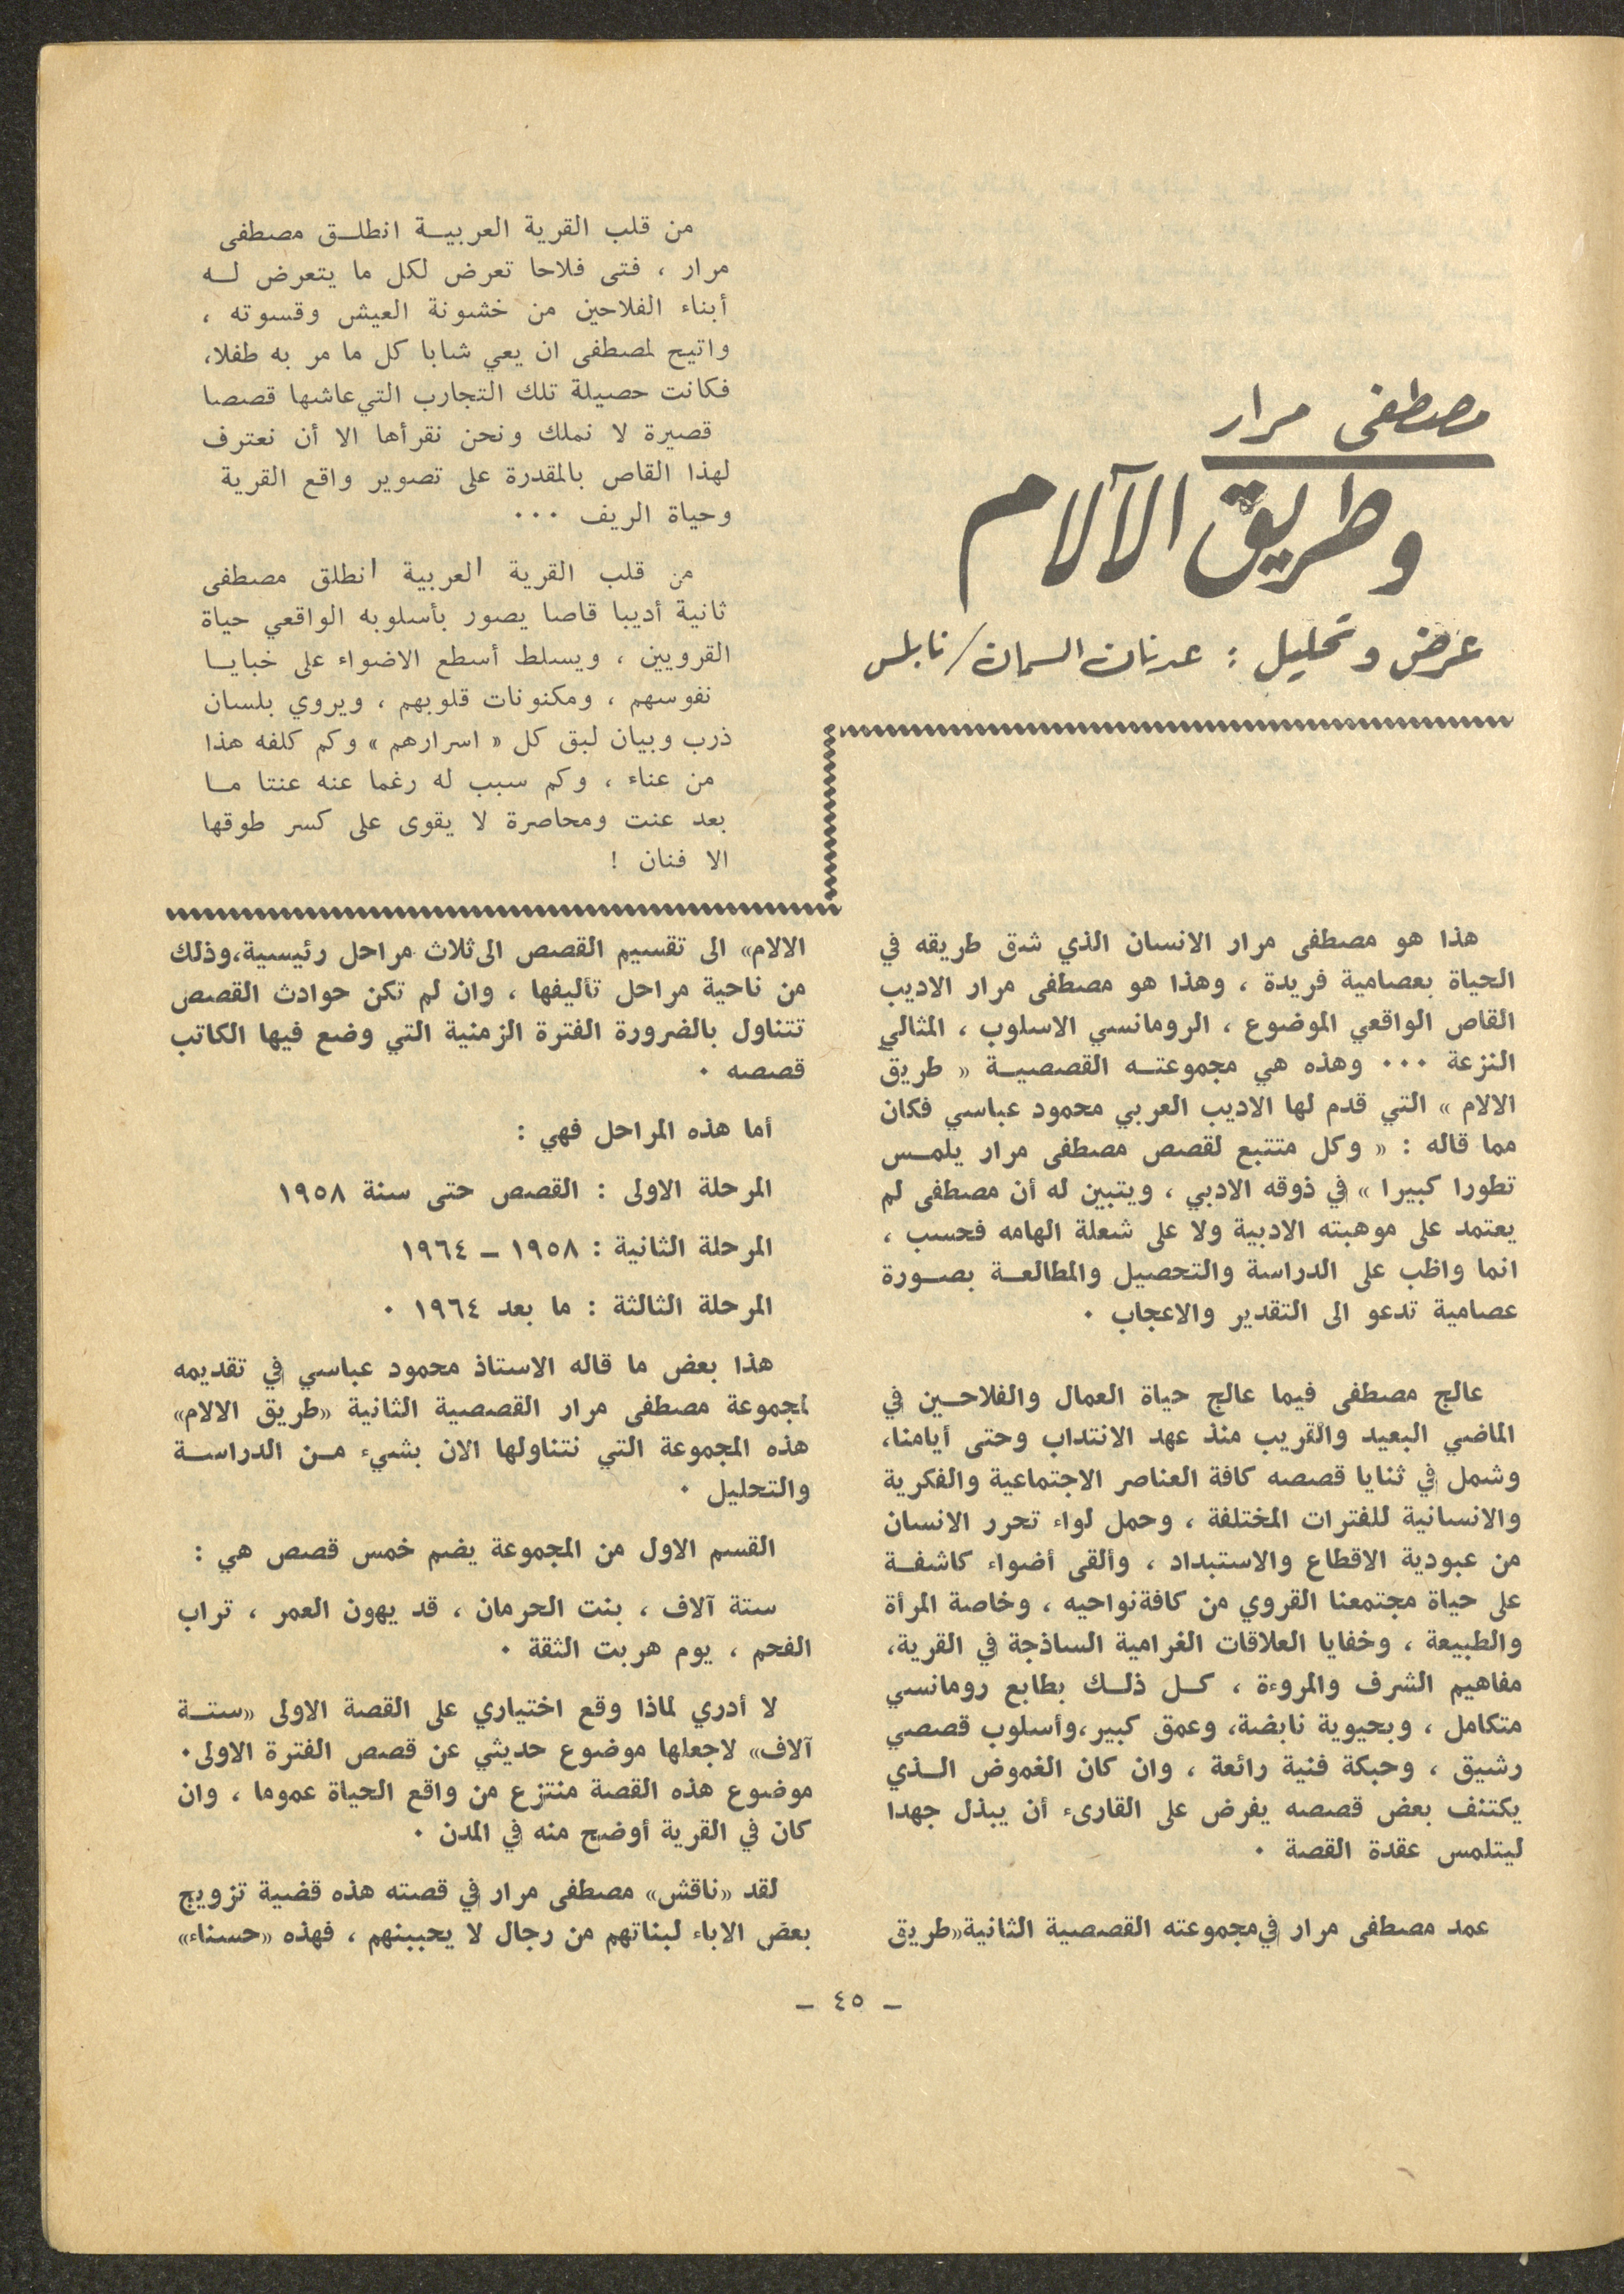 مصطفى مرار
وطريق الآلام
عرض وتحليل : عدنان السمان/نابلس
من قلب القرية العربيــة انطلــق مصطفى
مرار ، فتى فلاحا تعرض لكل ما يتعرض لــه
أبناء الفلاحين من خشونة العيش وقسوته ،
واتيح لمصطفى ان يعي شابا كل ما مر به طفلا،
فكانت حصيلة تلك التجارب التي عاشها قصصا
قصيرة لا نملك ونحن نقرأها الا أن نعترف
لهذا القاص بالمقدرة على تصوير واقع القرية
وحياة الريف ٠٠٠
من قلب القرية العربية انطلق مصطفى
ثانية أديبا قاصا يصور بأسلوبه الواقعي حياة
القرويين ، ويسلط أسطع الاضواء على خبايــا
نفوسهم ، ومكنونات قلوبهم ، ويروي بلسان
ذرب وبيان لبق كل « اسرارهم » وكم كلفه هذا
من عناء ، وكم سبب له رغما عنه عنتا مــا
بعد عنت ومحاصرة لا يقوى على كسر طوقها
الا فنان !
هذا هو مصطفى مرار الانسان الذي شق طريقه في
الحياة بعصامية فريدة ، وهذا هو مصطفى مرار الاديب
القاص الواقعي الموضوع ، الرومانسي الاسلوب ، المثالي
النزعة ٠٠٠ وهذه هي مجموعتــه القصصيــة « طريق
الالام » التي قدم لها الاديب العربي محمود عباسي فكان
مما قاله : « وكل متتبع لقصص مصطفى مرار يلمــس
تطورا كبيرا » في ذوقه الادبي ، ويتبين له أن مصطفى لم
يعتمد على موهبته الادبية ولا على شعلة الهامه فحسب ،
انما واظب على الدراسة والتحصيل والمطالعــة بصــورة
عصامية تدعو الى التقدير والاعجاب ٠
عالج مصطفى فيما عالج حياة العمال والفلاحــين في
الماضي البعيد والقريب منذ عهد الانتداب وحتى أيامنا،
وشمل في ثنايا قصصه كافة العناصر الاجتماعية والفكرية
والانسانية للفترات المختلفة ، وحمل لواء تحرر الانسان
من عبودية الاقطاع والاستبداد ، وألقى أضواء كاشفــة
على حياة مجتمعنا القروي من كافة نواحيه ، وخاصة المرأة
والطبيعة ، وخفايا العلاقات الغرامية الساذجة في القرية،
مفاهيم الشرف والمروءة ، كــل ذلــك بطابع رومانسي
متكامل ، وبحيوية نابضة، وعمق كبير، وأسلوب قصصي
رشيق ، وحبكة فنية رائعة ، وان كان الغموض الــذي
يكتنف بعض قصصه يفرض على القارىء أن يبذل جهدا
ليتلمس عقدة القصة ٠
عمد مصطفى مرار في مجموعته القصصية الثانية «طريق
الالام» الى تقسيم القصص الى ثلاث مراحل رئيسية، وذلك
من ناحية مراحل تأليفها ، وان لم تكن حوادث القصص
تتناول بالضرورة الفترة الزمنية التي وضع فيها الكاتب
قصصه ٠
أما هذه المراحل فهي :
المرحلة الاولى : القصص حتى سنة ١٩٥٨
المرحلة الثانية : ١٩٥٨ ــ ١٩٦٤
المرحلة الثالثة : ما بعد ١٩٦٤ ٠
هذا بعض ما قاله الاستاذ محمود عباسي في تقديمه
لمجموعة مصطفى مرار القصصية الثانية «طريق الالام»
هذه المجموعة التي نتناولها الان بشيء مــن الدراســة
والتحليل ٠
القسم الاول من المجموعة يضم خمس قصص هي :
ستة آلاف ، بنت الحرمان ، قد يهون العمر ، تراب
الفحم ، يوم هربت الثقة ٠
لا أدري لماذا وقع اختياري على القصة الاولى «ستــة
آلاف» لاجعلها موضوع حديثي عن قصص الفترة الاولى٠
موضوع هذه القصة منتزع من واقع الحياة عموما ، وان
كان في القرية أوضح منه في المدن ٠
لقد «ناقش» مصطفى مرار في قصته هذه قضية تزويج
بعض الاباء لبناتهم من رجال لا يحببنهم ، فهذه «حسناء»
ــ ٤٥ ــ